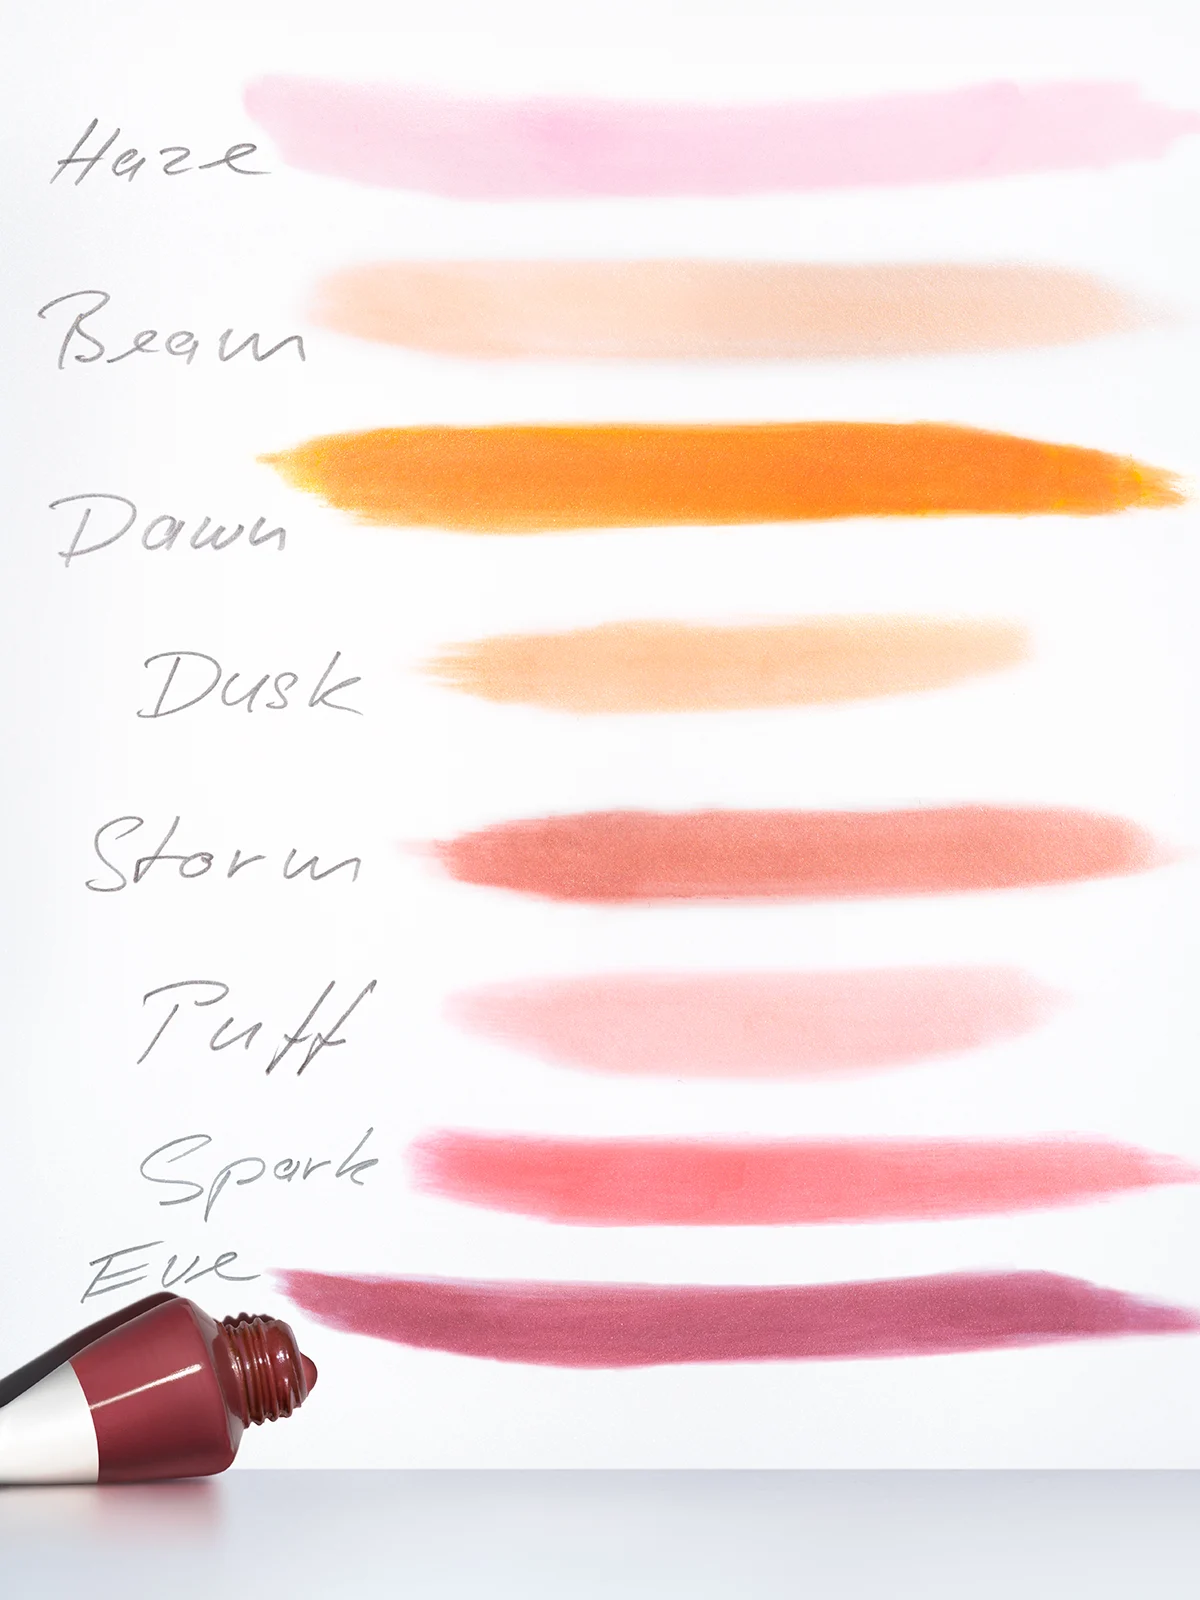 Haze
Beam
Dawn
Dusk
Storm
Puff
Spark
Eve